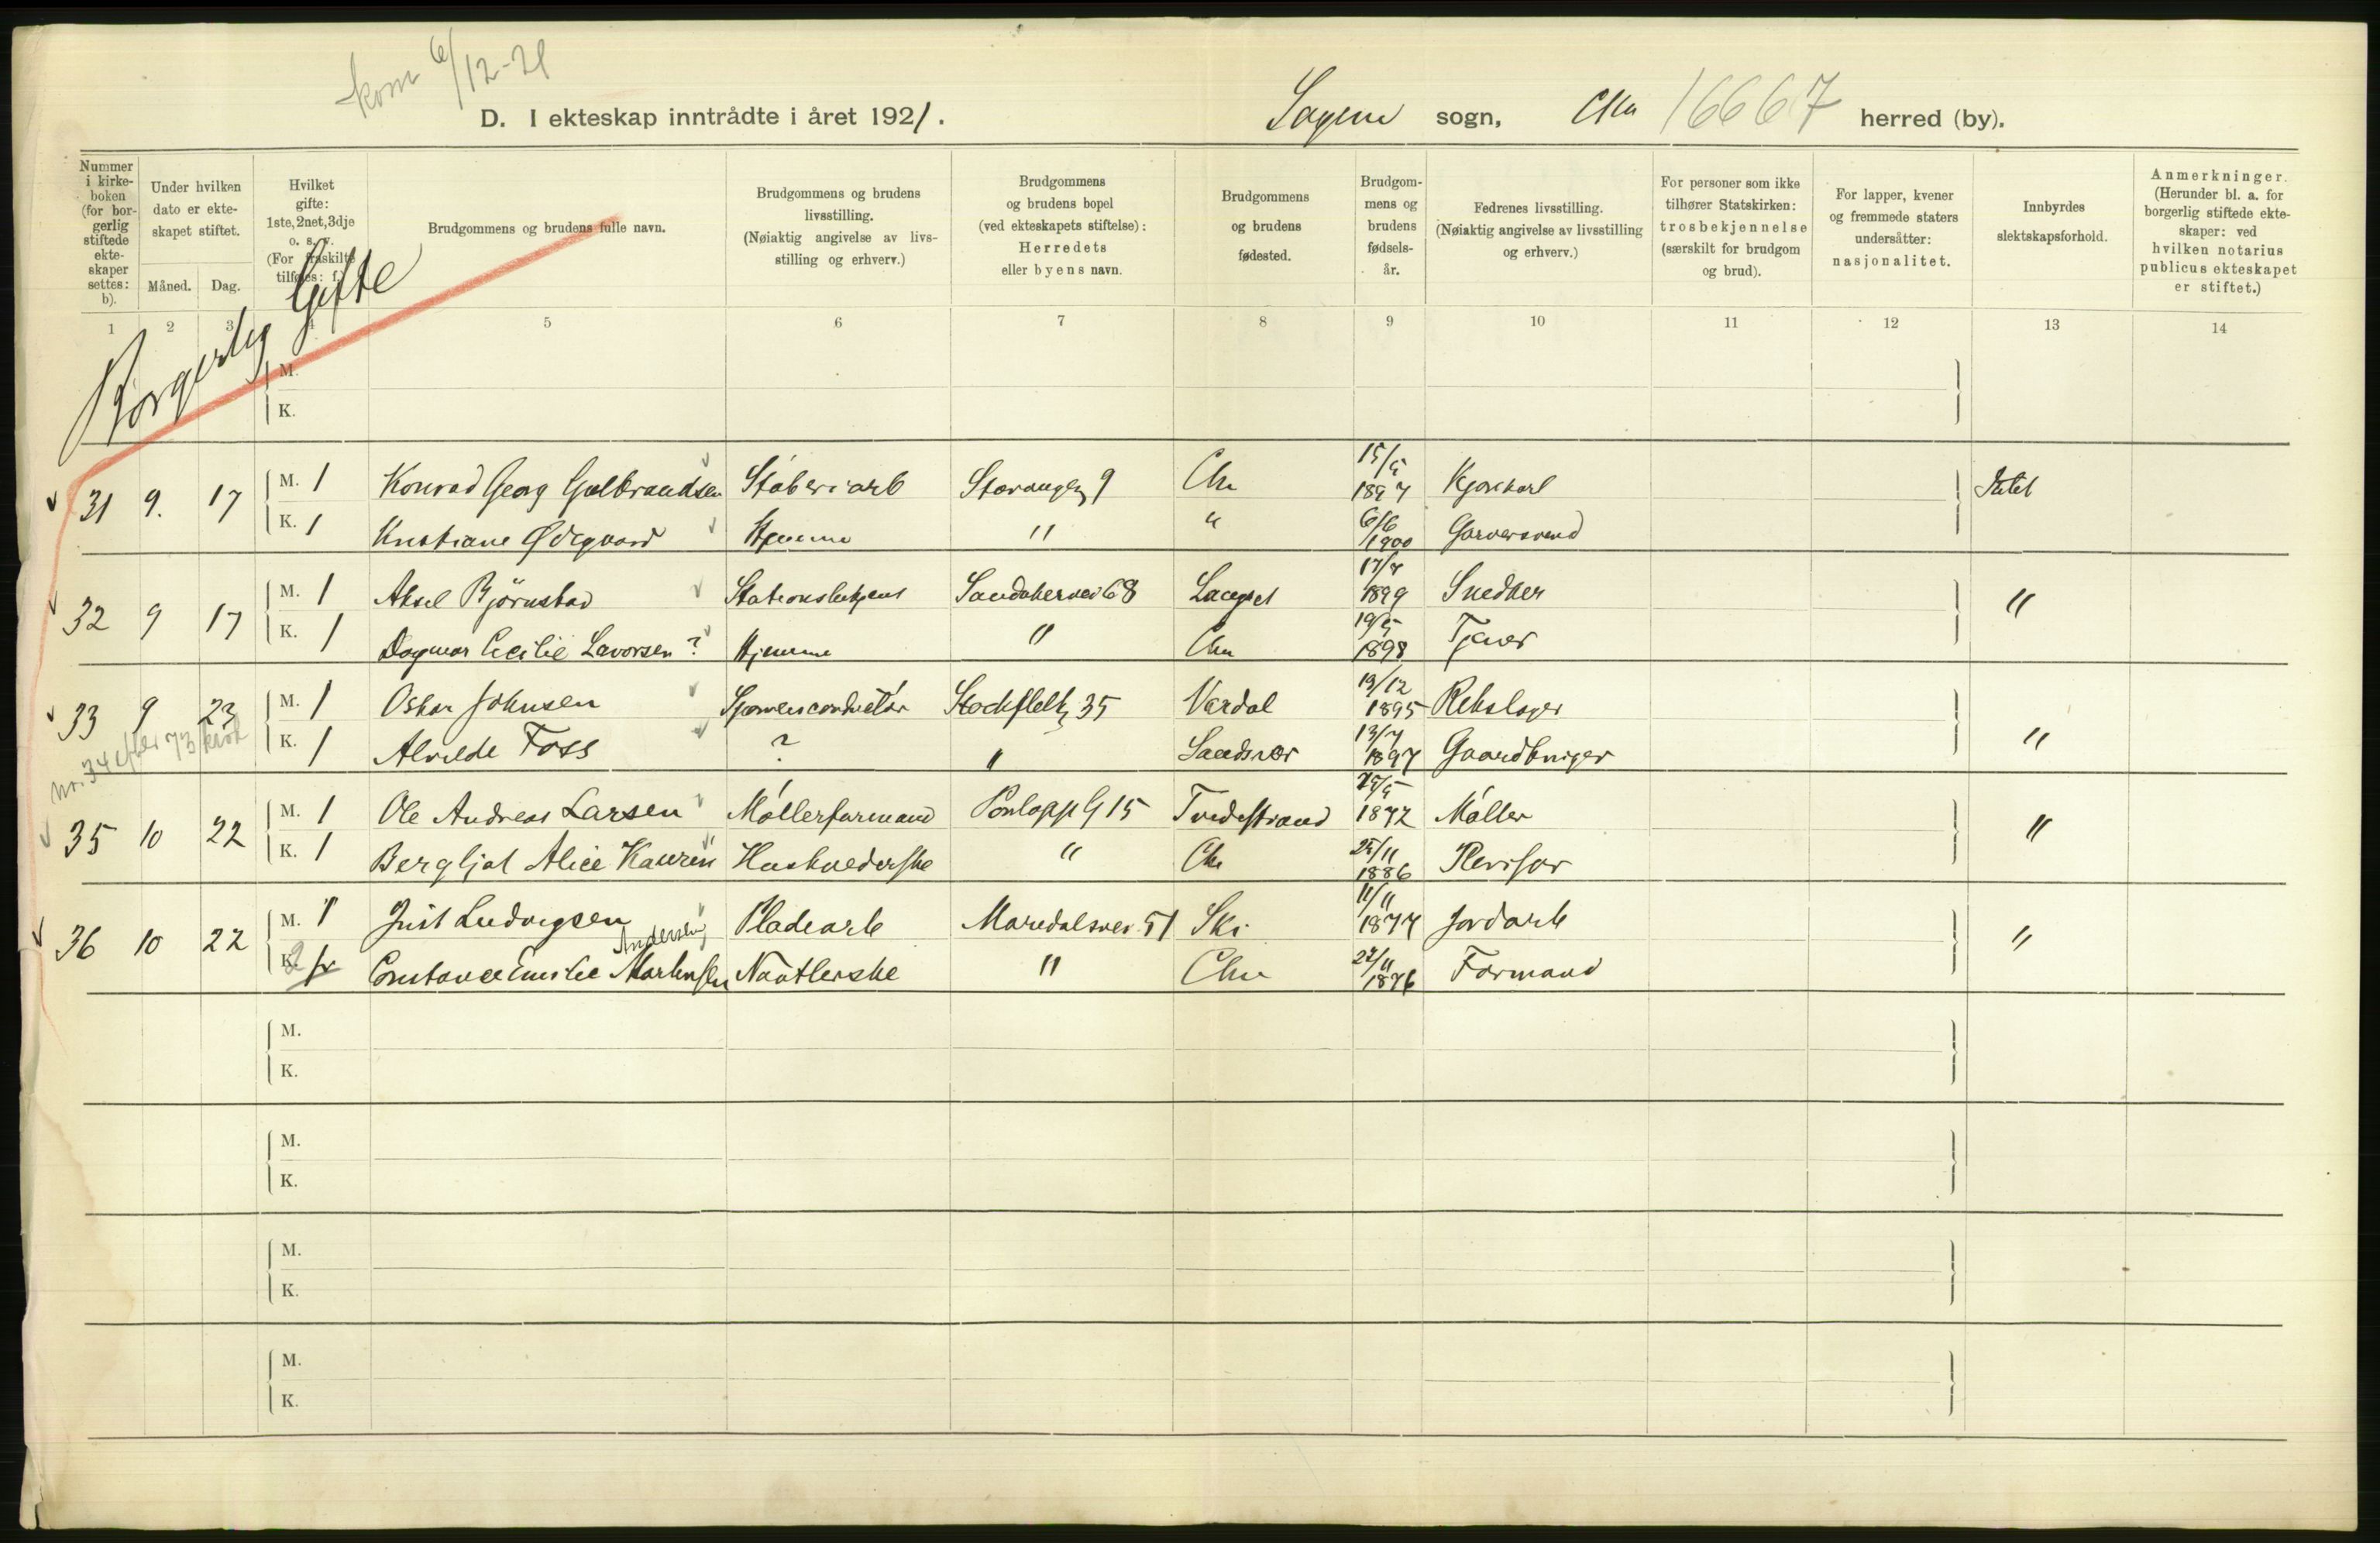 kom 6/12-21
D. I ekteskap inntrådte i året 1921. Sagene sogn, Chra 16667 herred (by).
Nummer i kirke-boken (for bor-gerlig stiftede ekte-skaper settes: b).
Under hvilken dato er ekte-skapet stiftet.
Måned. Dag.
Hvilket gifte: 1ste, 2net, 3dje o. s. v. (For fraskilte tilføies: f.)
Brudgommens og brudens fulle navn.
Brudgommens og brudens livsstilling. (Nøiaktig angivelse av livs-stilling og erhverv.)
Brudgommens og brudens bopel (ved ekteskapets stiftelse): Herredets eller byens navn.
Brudgommens og brudens fødested.
Brudgom-mens og brudens fødsels-år.
Fedrenes livsstilling. (Nøiaktig angivelse av livsstilling og erhverv.)
For personer som ikke tilhører Statskirken: trosbekjennelse (særskilt for brudgom og brud).
For lapper, kvener og fremmede staters undersåtter: nasjonalitet.
Innbyrdes slektskapsforhold.
Anmerkninger. (Herunder bl. a. for borgerlig stiftede ekte-skaper: ved hvilken notarius publicus ekteskapet er stiftet.)
1 2 3 4 5 6 7 8 9 10 11 12 13 14
Borgerlig Gifte
M.
K.
31 9. 17 M. 1 Konrad Georg Gulbrandsen Støberiarb Stavangerg 9 Chr 15/5 1897 Kjørekarl Intet
K. 1 Kristiane Ødegaard Hjemme " " 6/6 1900 Garversvend
32 9 17 M. 1 Aksel Bjørnstad Stationsbetjent Sandakervei 68 1899 Snedker "
K. 1 Dagmar Cecilie Lavorsen ? Hjemme " Chr 19/5 1898
33 9 23 M. 1 Oskar Johnsen Stockfleth 35 Vardal 19/12 1895 Rebslager
K. 1 Alvilde Foss ? " Sandsvær 13/7 1897 Gaardbruger "
nr. 34 efter 73
35 10 22 M. 1 Ole Andreas Larsen Møllerformand G 15 Tvedestrand 1872 Møller "
K. 1 Bergljot Alice Kaurin Husholderske " Chr 25/11 1886 Revisor
36 10 22 M. 1 Just Ludvigsen Pladearb Maridalsvei 51 Ski 11/11 1877 Jordarb "
Andersen
K. 2 fr Constance Emilie Martinsen Naatlerske " Chr 27/11 1876 Formand
M.
K.
M.
K.
M.
K.
M.
K.